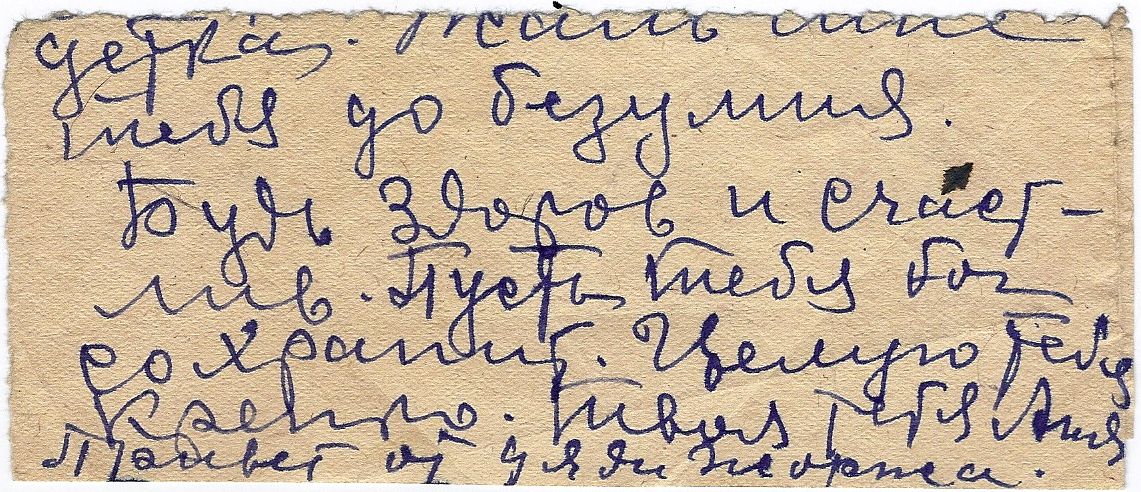 детка. Жаль мне
тебя до безумия.
Будь здоров и счаст-
лив. Пусть тебя бог
сохранит. Целую тебя
крепко. Твоя тебя Аня
Привет от дяди Жоржа.